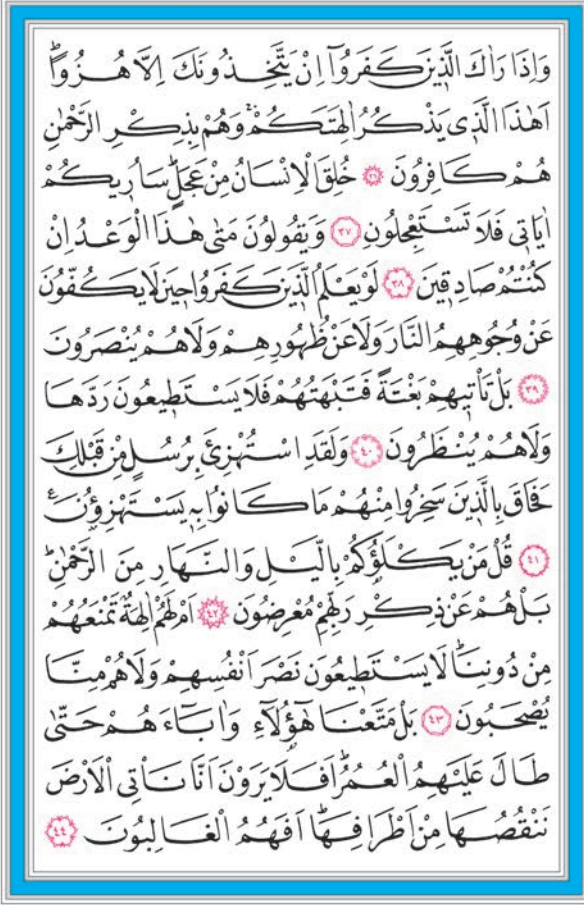 وَاِذَا رَاٰكَ الَّذ۪ينَ كَفَرُٓوا اِنْ يَتَّخِذُونَكَ اِلَّا هُزُوًاۜ
اَهٰذَا الَّذ۪ي يَذْكُرُ اٰلِهَتَكُمْۚ وَهُمْ بِذِكْرِ الرَّحْمٰنِ
هُمْ كَافِرُونَ ﴿٣٦﴾ خُلِقَ الْاِنْسَانُ مِنْ عَجَلٍۜ سَاُر۪يكُمْ
اٰيَات۪ي فَلَا تَسْتَعْجِلُونِ ﴿٣٧﴾ وَيَقُولُونَ مَتٰى هٰذَا الْوَعْدُ اِنْ
كُنْتُمْ صَادِق۪ينَ ﴿٣٨﴾ لَوْ يَعْلَمُ الَّذ۪ينَ كَفَرُوا ح۪ينَ لَا يَكُفُّونَ
عَنْ وُجُوهِهِمُ النَّارَ وَلَا عَنْ ظُهُورِهِمْ وَلَا هُمْ يُنْصَرُونَ
﴿٣٩﴾ بَلْ تَأْت۪يهِمْ بَغْتَةً فَتَبْهَتُهُمْ فَلَا يَسْتَط۪يعُونَ رَدَّهَا
وَلَا هُمْ يُنْظَرُونَ ﴿٤٠﴾ وَلَقَدِ اسْتُهْزِئَ بِرُسُلٍ مِنْ قَبْلِكَ
فَحَاقَ بِالَّذ۪ينَ سَخِرُوا مِنْهُمْ مَا كَانُوا بِه۪ يَسْتَهْزِؤُ۫نَ۟ ع
﴿٤١﴾ قُلْ مَنْ يَكْلَؤُ۬كُمْ بِالَّيْلِ وَالنَّهَارِ مِنَ الرَّحْمٰنِۜ
بَلْ هُمْ عَنْ ذِكْرِ رَبِّهِمْ مُعْرِضُونَ ﴿٤٢﴾ اَمْ لَهُمْ اٰلِهَةٌ تَمْنَعُهُمْ
مِنْ دُونِنَاۜ لَا يَسْتَط۪يعُونَ نَصْرَ اَنْفُسِهِمْ وَلَا هُمْ مِنَّا
يُصْحَبُونَ ﴿٤٣﴾ بَلْ مَتَّعْنَا هٰٓؤُ۬لَٓاءِ وَاٰبَٓاءَهُمْ حَتّٰى
طَالَ عَلَيْهِمُ الْعُمُرُۜ اَفَلَا يَرَوْنَ اَنَّا نَأْتِي الْاَرْضَ
نَنْقُصُهَا مِنْ اَطْرَافِهَاۜ اَفَهُمُ الْغَالِبُونَ ﴿٤٤﴾